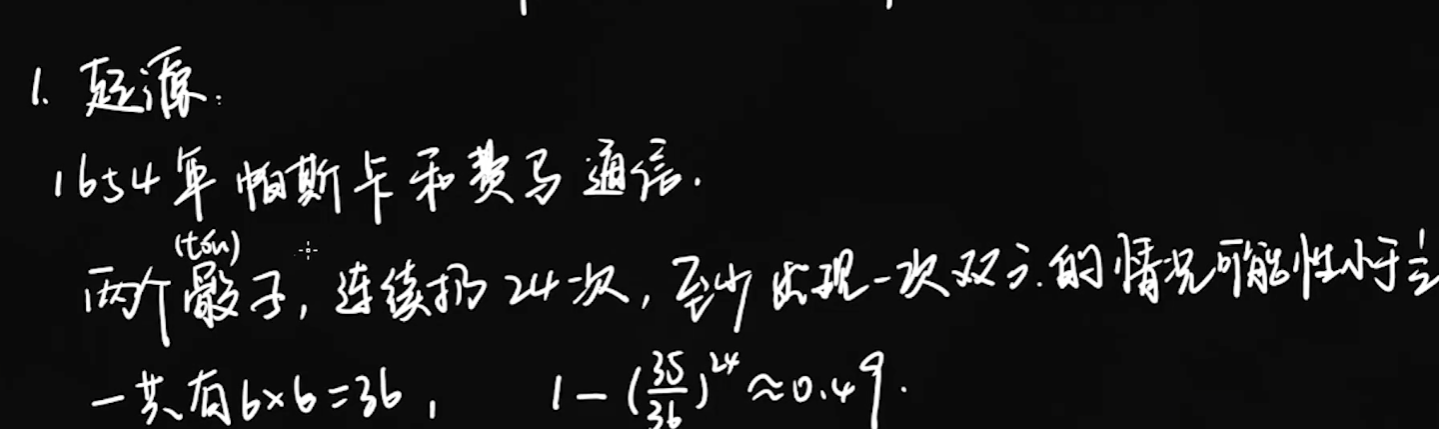 1. 起源:
1654年 帕斯卡和费马通信.
(tóu)
两个骰子, 连续扔24次, 至少出现一次双六的情况可能性小于1/2
一共有6×6=36, 1-(35/36)^24≈0.49.